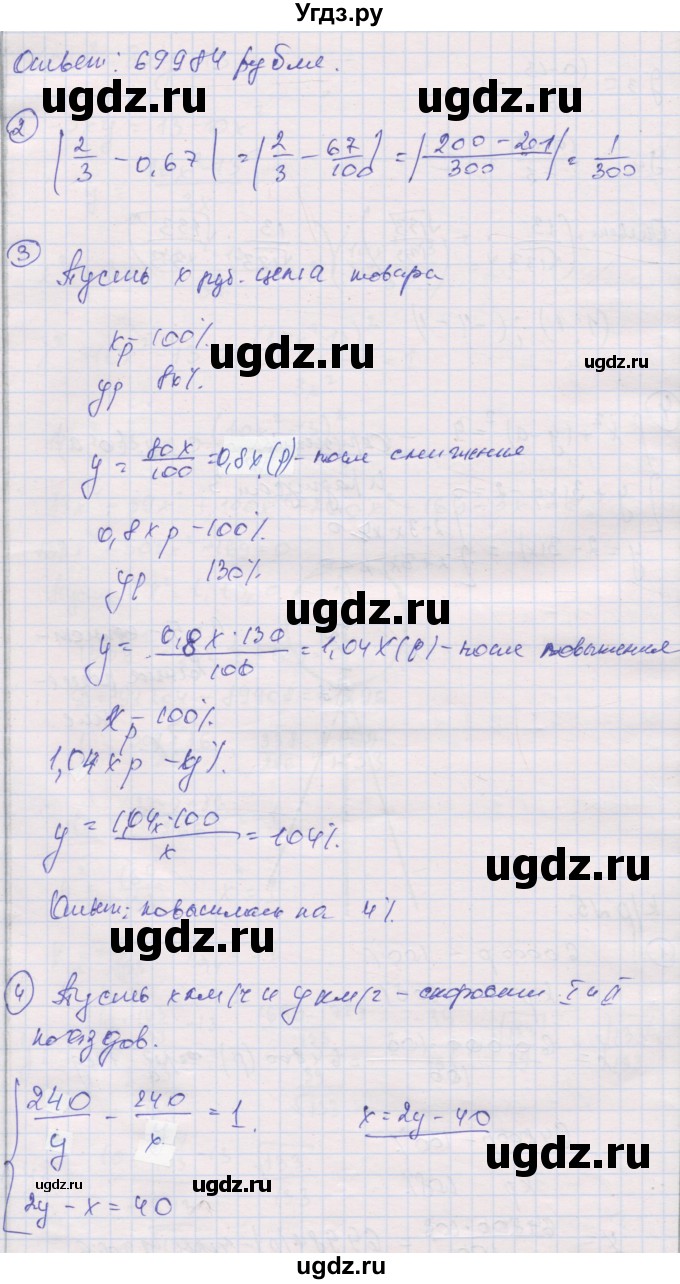 Угдз.ру
Ответ: 69984 рубля.
ugdz.ru ugdz.ru
2 |2/3 - 0,67| = |2/3 - 67/100| = |(200 - 201)/300| = 1/300
3 Пусть x руб. цена товара
xр - 100%.
ugdz.ru
yр 80%.
y = 80x/100 = 0,8x(р) - после снижения
0,8xр - 100%.
yр 130%.
ugdz.ru
y = 0,8x·130/100 = 1,04x(р) - после повышения
xр - 100%.
1,04xр - y%.
y = 1,04x·100/x = 104%.
ugdz.ru
Ответ: повысилась на 4%.
ugdz.ru
4 Пусть x км/ч и y км/ч - скорости I и II
поездов.
240/y - 240/x = 1. x = 2y - 40
ugdz.ru
ugdz.ru
2y - x = 40
ugdz.ru